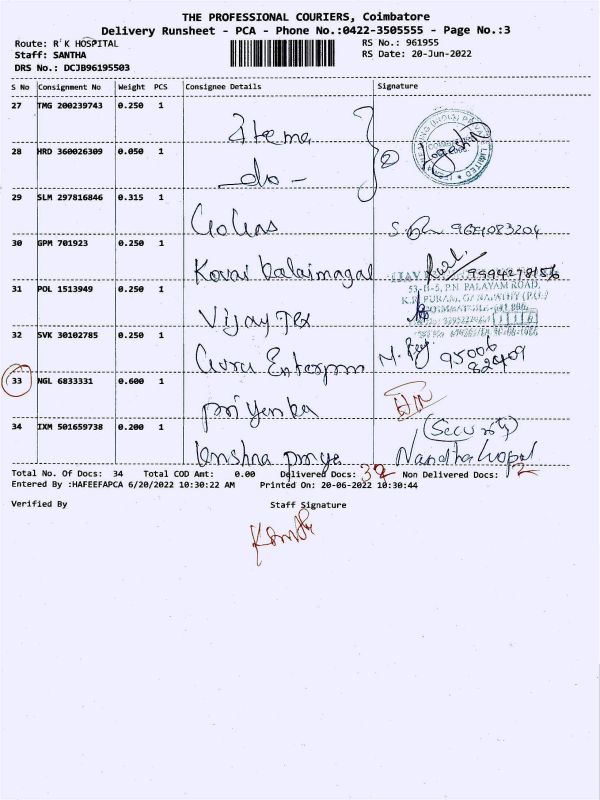 THE PROFESSIONAL COURIERS, Coimbatore
Delivery Runsheet - PCA - Phone No.:0422-3505555 - Page No.:3
Route: R K HOSPITAL RS No.: 961955
Staff: SANTHA RS Date: 20-Jun-2022
DRS No.: DCJB96195503
S No Consignment No Weight PCS Consignee Details Signature
27 TMG 200239743 0.250 1
28 HRD 360026309 0.050 1 -do-
29 SLM 297816846 0.315 1
30 GPM 701923 0.250 1 Kovai Kalaimagal
31 POL 1513949 0.250 1 Vijay Tex
53-B-5, P.N PALAYAM ROAD,
32 SVK 30102785 0.250 1 Guru
33 NGL 6833331 0.600 1 priyenka
34 IXM 501659738 0.200 1 Krishna priya (Security)
Nandha Gopal
Total No. Of Docs: 34 Total COD Amt: 0.00 Delivered Docs: 32 Non Delivered Docs: 2
Entered By :HAFEEFAPCA 6/20/2022 10:30:22 AM Printed On: 20-06-2022 10:30:44
Verified By Staff Signature